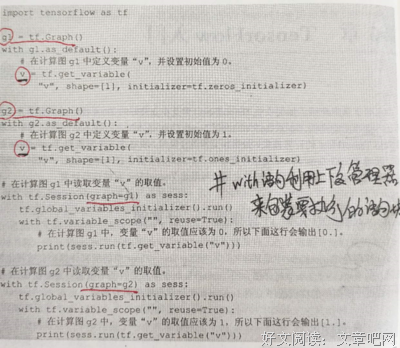 import tensorflow as tf
g1 = tf.Graph()
with g1.as_default():
# 在计算图 g1 中定义变量 “v”，并设置初始值为 0。
v = tf.get_variable(
"v", shape=[1], initializer=tf.zeros_initializer)
g2 = tf.Graph()
with g2.as_default():
# 在计算图 g2 中定义变量 “v”，并设置初始值为 1。
v = tf.get_variable(
"v", shape=[1], initializer=tf.ones_initializer)
# 在计算图 g1 中读取变量 “v” 的取值。
with tf.Session(graph=g1) as sess:
tf.global_variables_initializer().run()
with tf.variable_scope("", reuse=True):
# 在计算图 g1 中，变量 “v” 的取值应该为 0，所以下面这行会输出[0.]。
print(sess.run(tf.get_variable("v")))
# with语句利用上下文管理器
来包裹要执行的语句块
# 在计算图 g2 中读取变量 “v” 的取值。
with tf.Session(graph=g2) as sess:
tf.global_variables_initializer().run()
with tf.variable_scope("", reuse=True):
# 在计算图 g2 中，变量 “v” 的取值应该为 1，所以下面这行会输出[1.]。
print(sess.run(tf.get_variable("v")))
好文阅读：文章吧网